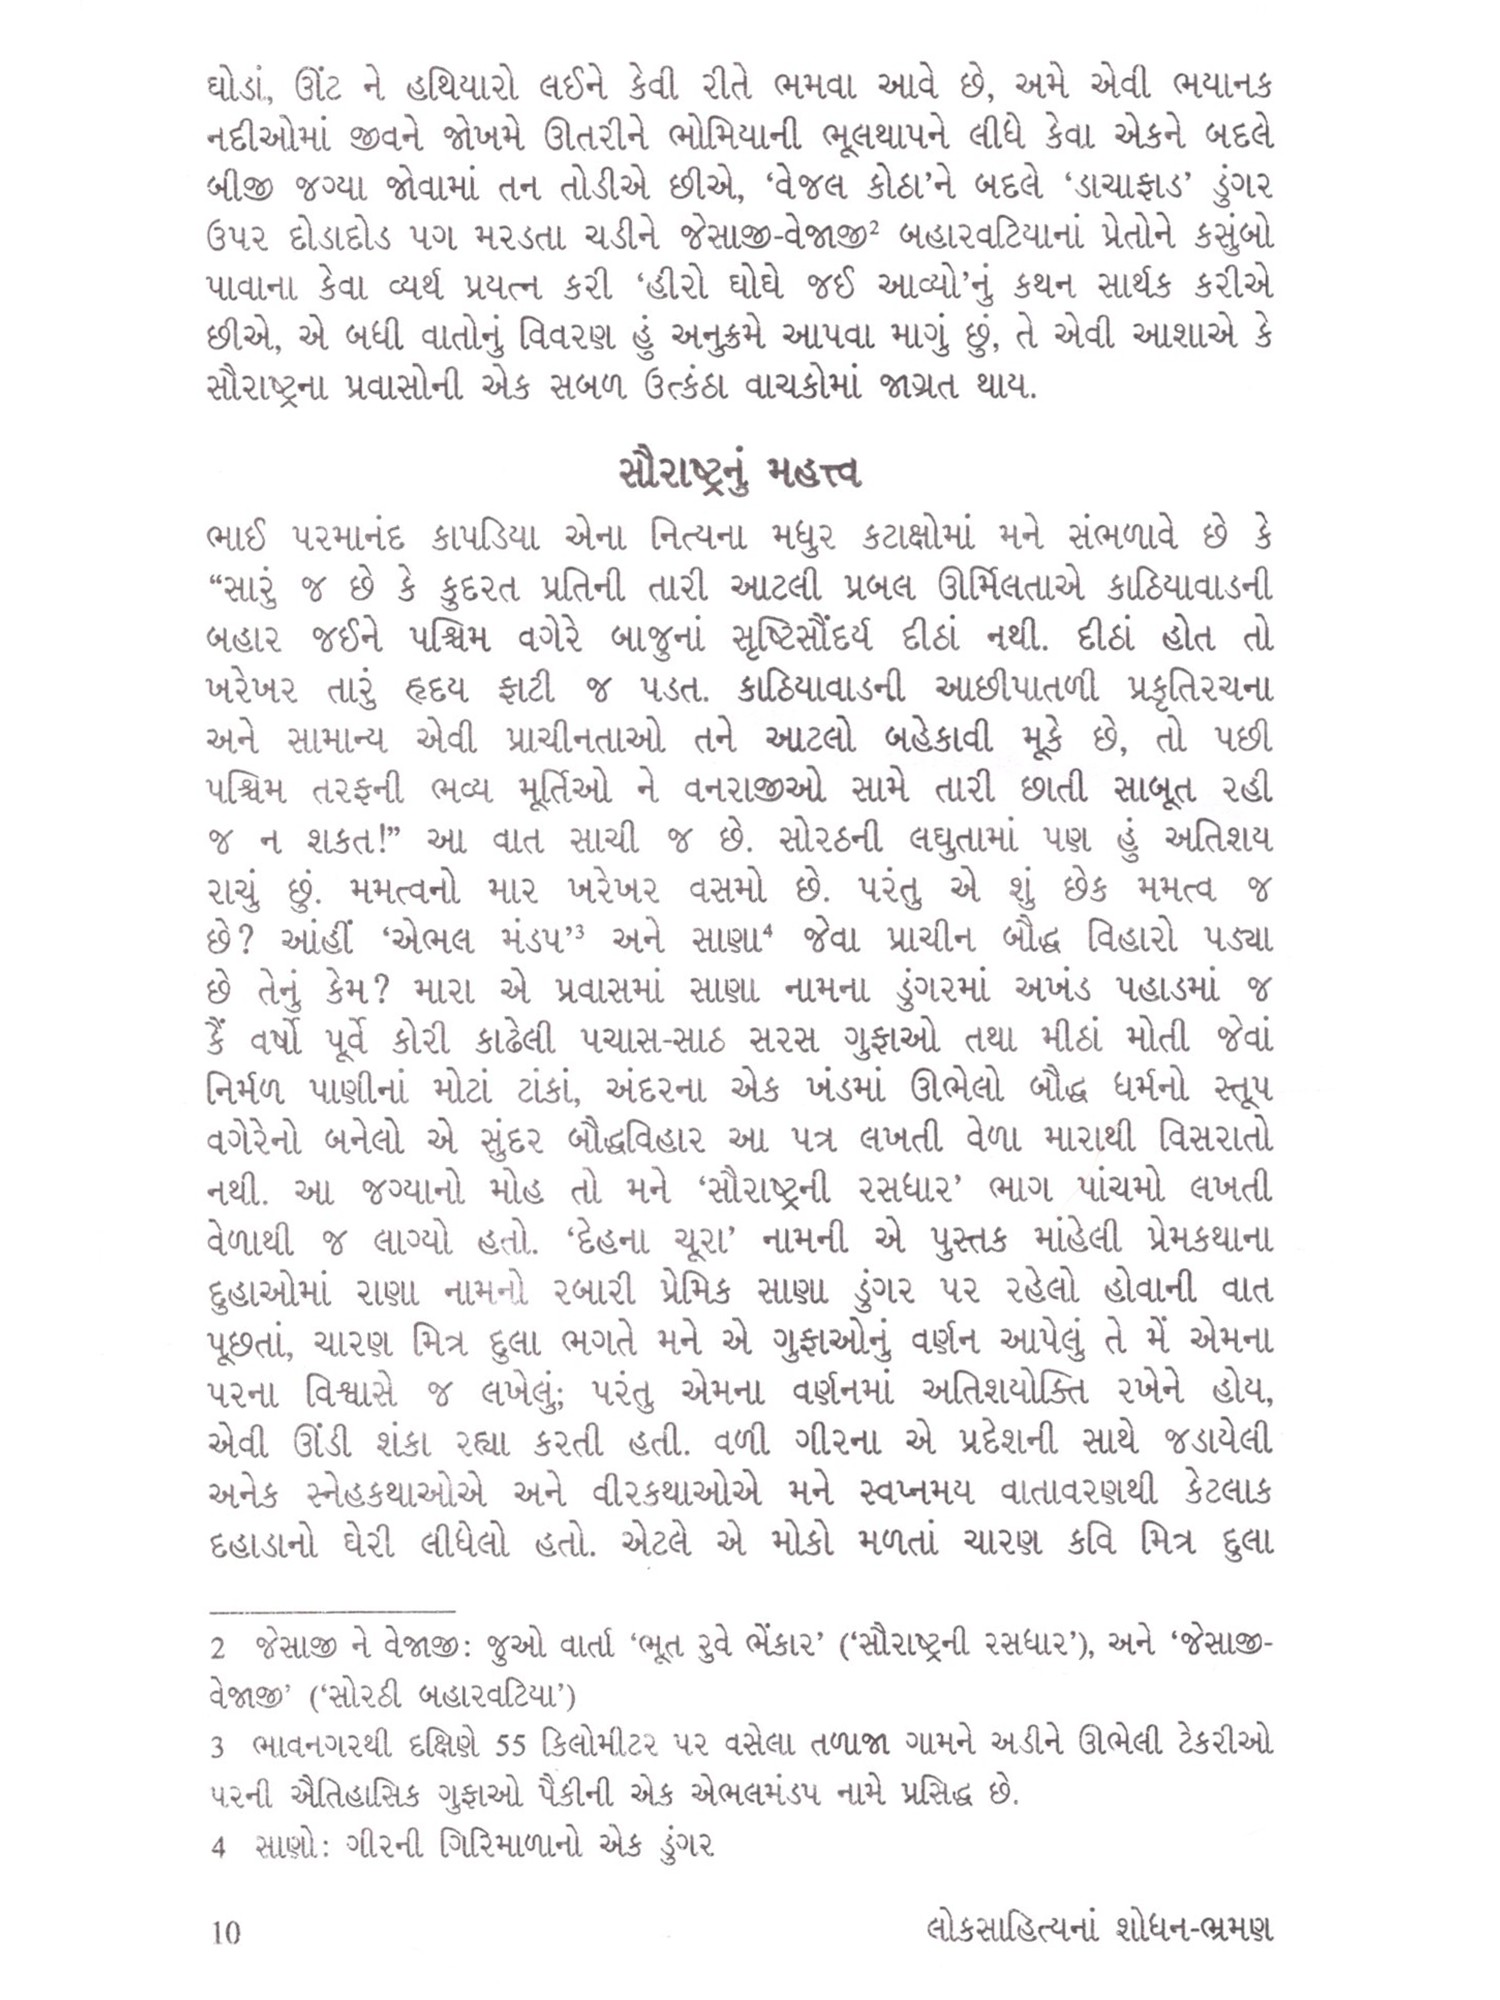 ઘોડાં, ઊંટ ને હથિયારો લઈને કેવી રીતે ભમવા આવે છે, અમે એવી ભયાનક
નદીઓમાં જીવને જોખમે ઊતરીને ભોમિયાની ભૂલથાપને લીધે કેવા એકને બદલે
બીજી જગ્યા જોવામાં તન તોડીએ છીએ, ‘વેજલ કોઠા’ને બદલે ‘ડાચાફાડ’ ડુંગર
ઉપર દોડાદોડ પગ મરડતા ચડીને જેસાજી-વેજાજી² બહારવટિયાનાં પ્રેતોને કસુંબો
પાવાના કેવા વ્યર્થ પ્રયત્ન કરી ‘હીરો ઘોઘે જઈ આવ્યો’નું કથન સાર્થક કરીએ
છીએ, એ બધી વાતોનું વિવરણ હું અનુક્રમે આપવા માગું છું, તે એવી આશાએ કે
સૌરાષ્ટ્રના પ્રવાસોની એક સબળ ઉત્કંઠા વાચકોમાં જાગ્રત થાય.
સૌરાષ્ટ્રનું મહત્ત્વ
ભાઈ પરમાનંદ કાપડિયા એના નિત્યના મધુર કટાક્ષોમાં મને સંભળાવે છે કે
“સારું જ છે કે કુદરત પ્રતિની તારી આટલી પ્રબલ ઊર્મિલતાએ કાઠિયાવાડની
બહાર જઈને પશ્ચિમ વગેરે બાજુનાં સૃષ્ટિસૌંદર્ય દીઠાં નથી. દીઠાં હોત તો
ખરેખર તારું હૃદય ફાટી જ પડત. કાઠિયાવાડની આછીપાતળી પ્રકૃતિરચના
અને સામાન્ય એવી પ્રાચીનતાઓ તને આટલો બહેકાવી મૂકે છે, તો પછી
પશ્ચિમ તરફની ભવ્ય મૂર્તિઓ ને વનરાજીઓ સામે તારી છાતી સાબૂત રહી
જ ન શકત!” આ વાત સાચી જ છે. સોરઠની લઘુતામાં પણ હું અતિશય
રાચું છું. મમત્વનો માર ખરેખર વસમો છે. પરંતુ એ શું છેક મમત્વ જ
છે? આંહીં ‘એભલ મંડપ’³ અને સાણા⁴ જેવા પ્રાચીન બૌદ્ધ વિહારો પડ્યા
છે તેનું કેમ? મારા એ પ્રવાસમાં સાણા નામના ડુંગરમાં અખંડ પહાડમાં જ
કૈં વર્ષો પૂર્વે કોરી કાઢેલી પચાસ-સાઠ સરસ ગુફાઓ તથા મીઠાં મોતી જેવાં
નિર્મળ પાણીનાં મોટાં ટાંકાં, અંદરના એક ખંડમાં ઊભેલો બૌદ્ધ ધર્મનો સ્તૂપ
વગેરેનો બનેલો એ સુંદર બૌદ્ધવિહાર આ પત્ર લખતી વેળા મારાથી વિસરાતો
નથી. આ જગ્યાનો મોહ તો મને ‘સૌરાષ્ટ્રની રસધાર’ ભાગ પાંચમો લખતી
વેળાથી જ લાગ્યો હતો. ‘દેહના ચૂરા’ નામની એ પુસ્તક માંહેલી પ્રેમકથાના
દુહાઓમાં રાણા નામનો રબારી પ્રેમિક સાણા ડુંગર પર રહેલો હોવાની વાત
પૂછતાં, ચારણ મિત્ર દુલા ભગતે મને એ ગુફાઓનું વર્ણન આપેલું તે મેં એમના
પરના વિશ્વાસે જ લખેલું; પરંતુ એમના વર્ણનમાં અતિશયોક્તિ રખેને હોય,
એવી ઊંડી શંકા રહ્યા કરતી હતી. વળી ગીરના એ પ્રદેશની સાથે જડાયેલી
અનેક સ્નેહકથાઓએ અને વીરકથાઓએ મને સ્વપ્નમય વાતાવરણથી કેટલાક
દહાડાનો ઘેરી લીધેલો હતો. એટલે એ મોકો મળતાં ચારણ કવિ મિત્ર દુલા
2 જેસાજી ને વેજાજી: જુઓ વાર્તા ‘ભૂત રુવે ભેંકાર’ (‘સૌરાષ્ટ્રની રસધાર’), અને ‘જેસાજી-
વેજાજી’ (‘સોરઠી બહારવટિયા’)
3 ભાવનગરથી દક્ષિણે 55 કિલોમીટર પર વસેલા તળાજા ગામને અડીને ઊભેલી ટેકરીઓ
પરની ઐતિહાસિક ગુફાઓ પૈકીની એક એભલમંડપ નામે પ્રસિદ્ધ છે.
4 સાણો: ગીરની ગિરિમાળાનો એક ડુંગર
10 લોકસાહિત્યનાં શોધન-ભ્રમણ